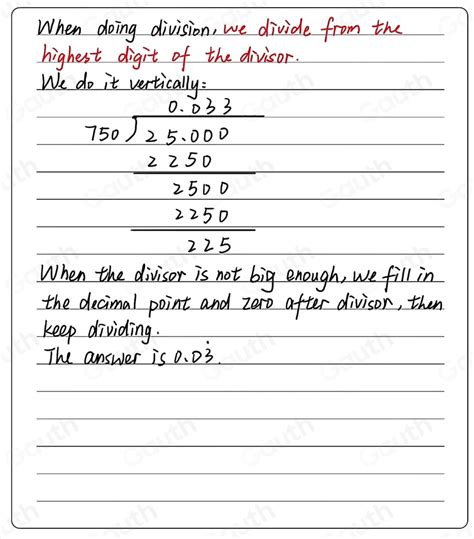 When doing division, we divide from the
highest digit of the divisor.
We do it vertically:
0.033
750)25.000
2250
2500
2250
225
When the divisor is not big enough, we fill in
the decimal point and zero after divisor, then
keep dividing.
The answer is 0.03̇.
Gauth